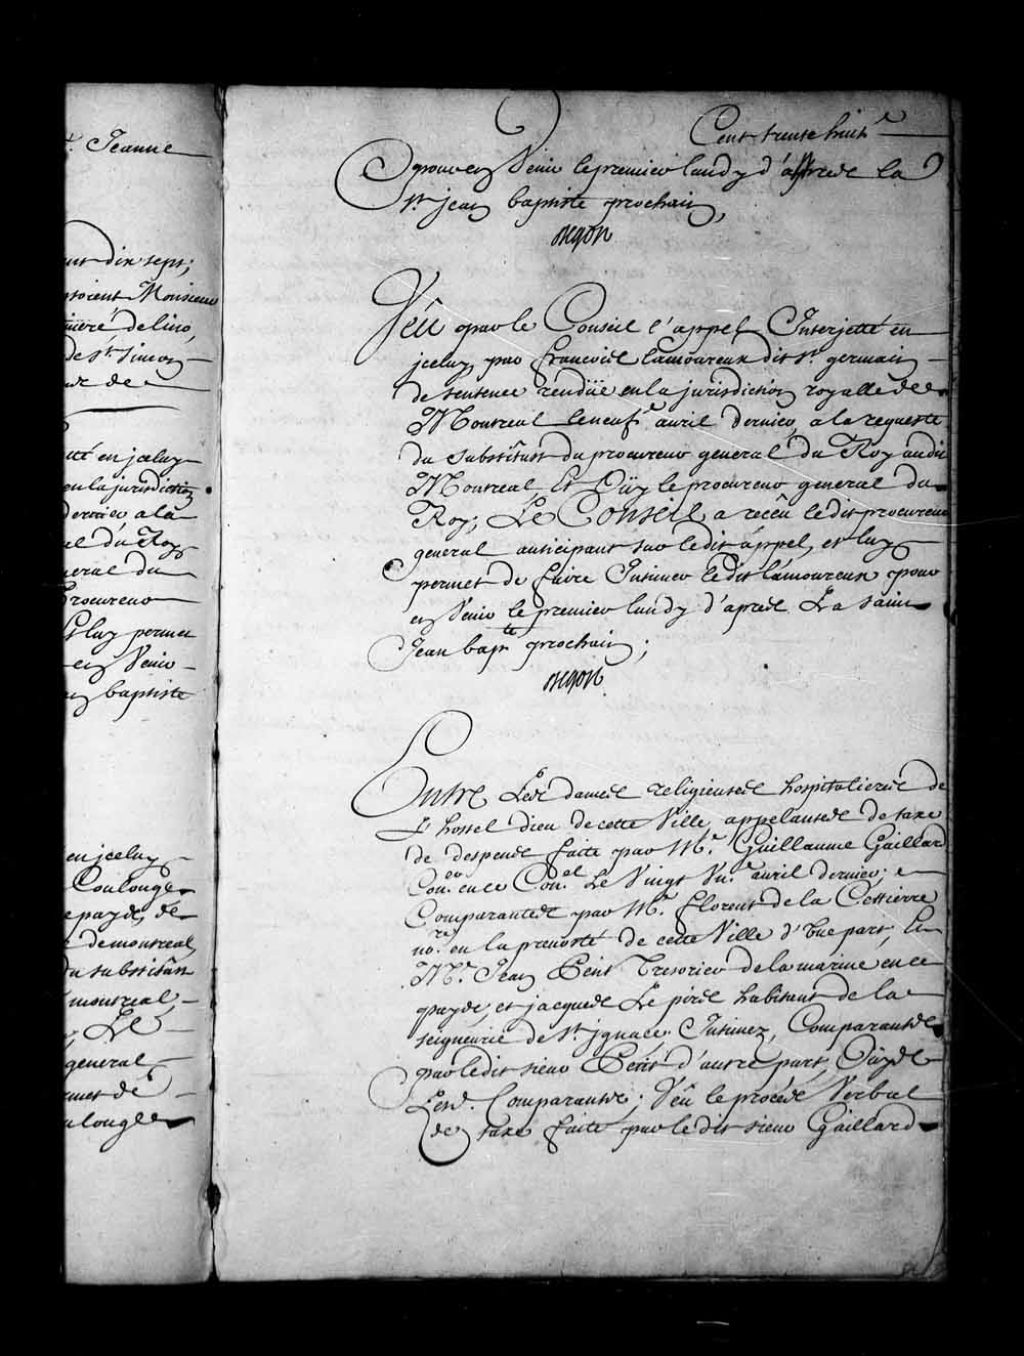 t. Jeanne
dix sept;
Monsieur
de lino,
de St. Simon
de
en jceluy
en la jurisdiction
dernier a la
du Roy
du
Procureur
luy permet
en Venir
baptiste
en jceluy
Coulonge
payis, de
de montreal
du substitut
montreal,
Le
general
de
Cent trente huit.e
pour en Venir le premier lundy d'aprés la
St. jean baptiste prochain,
Begon
Veû par le Conseil l'appel Interjetté en
jceluy par francois lamoureux dit St. germain
de sentence rendüe en la jurisdiction royalle de
Montreal le neuf.e avril dernier, a la requeste
du substitut du procureur general du Roy audit
Montreal Et Oüy le procureur general du
Roy; Le Conseil a receu ledit procureur
general anticipant sur ledit appel, et luy
permet de faire Intimer ledit lamoureux pour
en Venir le premier lundy d'aprés La Saint
Jean bapte. prochain;
Begon
Entre Les dames religieuses hospitalieres de
L'hostel dieu de cette Ville, appelantes de taxe
de despens faite par Mr. Guillaume Gaillard
Coner. en ce Conel. Le Vingt Un.e avril dernier;
Comparantes par Mr. florent de la Cettierre
nore. en la prevosté de cette Ville d'Une part, Et
Mr. Jean Petit Tresorier de la marine en ce
payis, et jacques Le piré habitant de la
seigneurie de St. jgnace Intimez, Comparants
par ledit sieur Petit d'autre part, Oüy
Lesd. Comparants; Veû le procés Verbal
de taxe faite par ledit sieur Gaillard